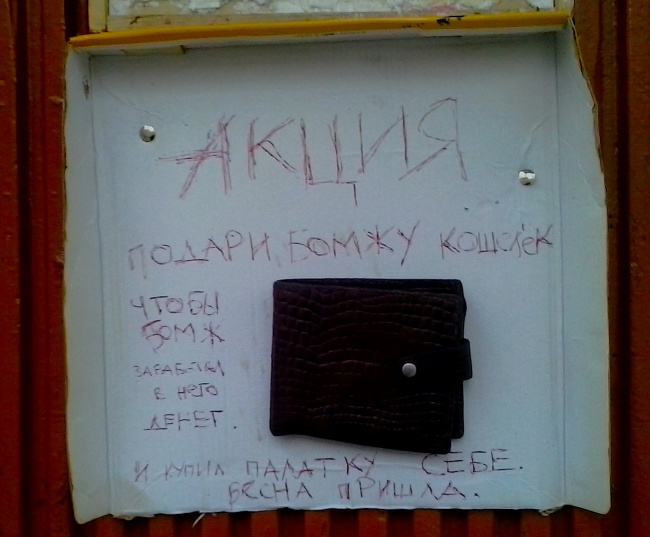 АКЦИЯ
ПОДАРИ БОМЖУ КОШЕЛЁК
ЧТОБЫ
БОМЖ
ЗАРАБОТАЛ
В НЕГО
ДЕНЕГ.
И КУПИЛ ПАЛАТКУ СЕБЕ.
ВЕСНА ПРИШЛА.